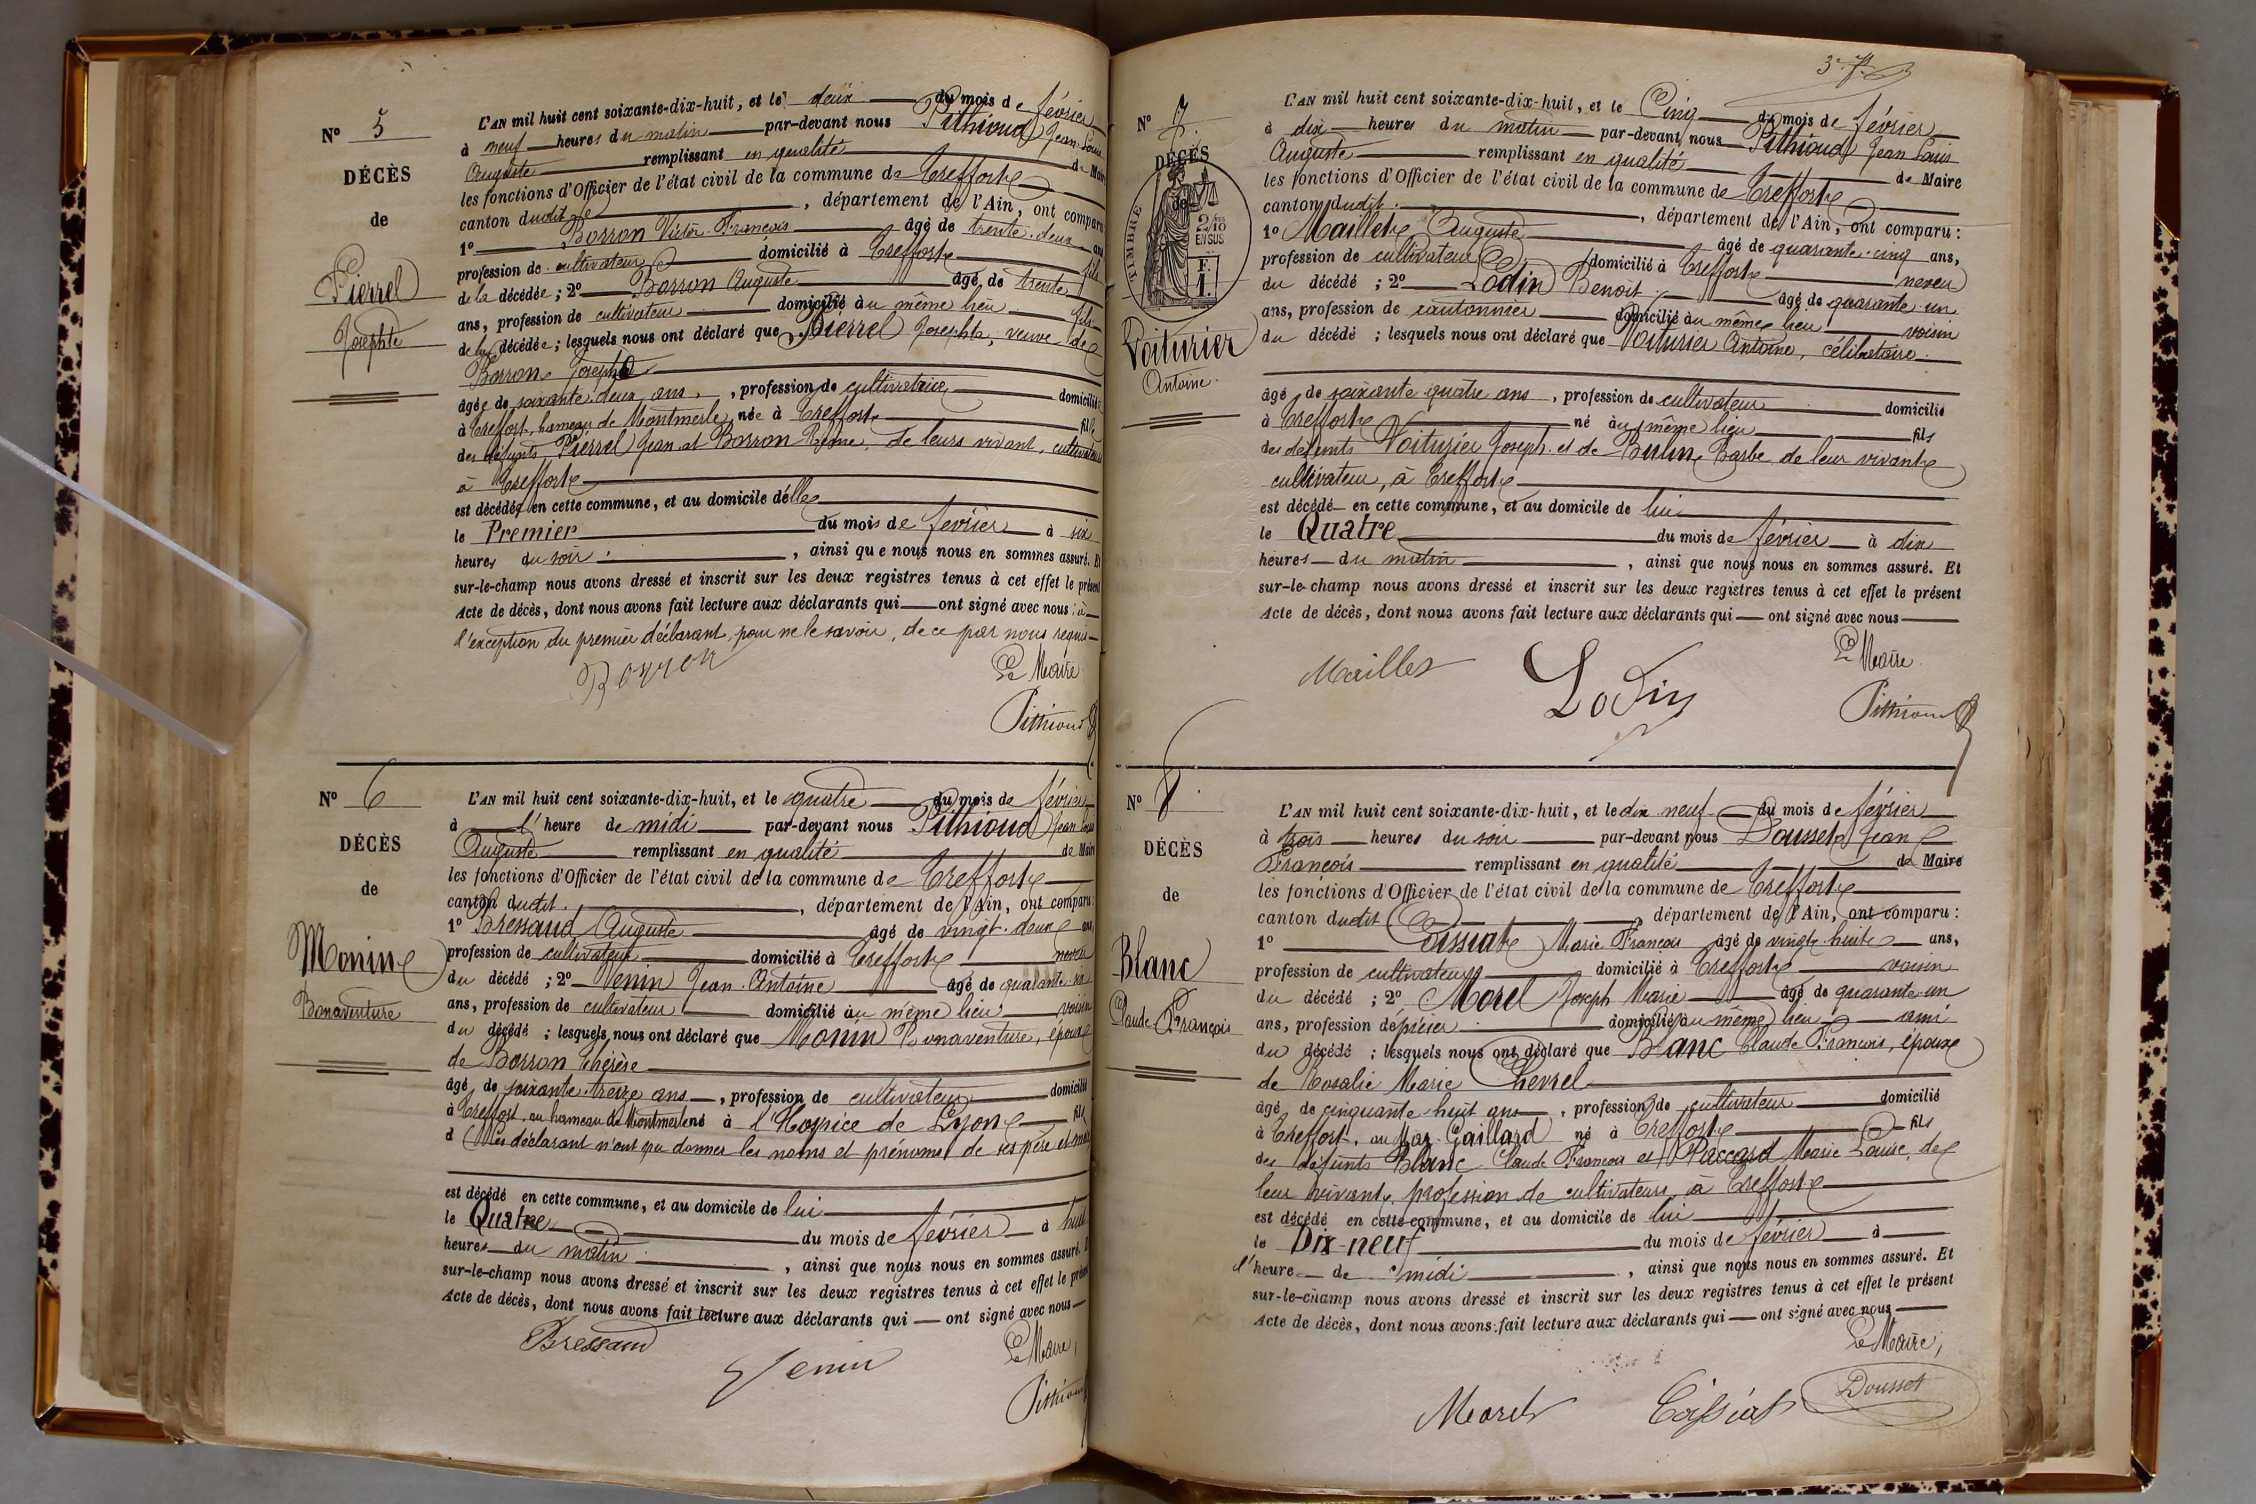 N° 5
DÉCÈS
de
Pierrel
Josephte
L'AN mil huit cent soixante-dix-huit, et le deux du mois de février
à neuf heures du matin par-devant nous Pithioud Jean Louis
Auguste remplissant en qualité de Maire
les fonctions d'Officier de l'état civil de la commune de Treffort
canton dudit, département de l'Ain, ont comparu
1° Borron Victor François âgé de trente-deux ans
profession de cultivateur domicilié à Treffort fils
de la décédée; 2° Borron Auguste âgé de trente
ans, profession de cultivateur domicilié au même lieu fils
de la décédée; lesquels nous ont déclaré que Pierrel Josephte, veuve de
Borron Joseph
âgée de soixante deux ans, profession de cultivatrice domiciliée
à Treffort, hameau de Montmerle, née à Treffort fille
des défunts Pierrel Jean et Borron de leurs vivant, cultivateurs
à Treffort
est décédée en cette commune, et au domicile d'elle
le Premier du mois de février à six
heures du soir, ainsi que nous nous en sommes assuré. Et
sur-le-champ nous avons dressé et inscrit sur les deux registres tenus à cet effet le présent
Acte de décès, dont nous avons fait lecture aux déclarants qui ont signé avec nous à
l'exception du premier déclarant, pour ne le savoir, de ce par nous requis
Borron
Le Maire
Pithioud
N° 6
DÉCÈS
de
Monin
Bonaventure
L'AN mil huit cent soixante-dix-huit, et le quatre du mois de février
à l'heure de midi par-devant nous Pithioud Jean Louis
Auguste remplissant en qualité de Maire
les fonctions d'Officier de l'état civil de la commune de Treffort
canton dudit, département de l'Ain, ont comparu:
1° Bressaud Auguste âgé de vingt-deux ans,
profession de cultivateur domicilié à Treffort neveu
du décédé; 2° Venin Jean Antoine âgé de quarante six
ans, profession de cultivateur domicilié au même lieu voisin
du décédé; lesquels nous ont déclaré que Monin Bonaventure, époux
de Borron Thérèse
âgé de soixante-treize ans, profession de cultivateur domicilié
à Treffort, au hameau de Montmerle né à l'Hospice de Lyon fils
d (Les déclarant n'ont pu donner les noms et prénoms de ses père et mère
est décédé en cette commune, et au domicile de lui
le Quatre du mois de février à huit
heures du matin, ainsi que nous nous en sommes assuré. Et
sur-le-champ nous avons dressé et inscrit sur les deux registres tenus à cet effet le présent
Acte de décès, dont nous avons fait lecture aux déclarants qui ont signé avec nous
Bressaud
Venin
Le Maire,
Pithioud
N° 7.
DÉCÈS
de
TIMBRE
2/10
EN SUS
Voiturier
Antoine.
L'AN mil huit cent soixante-dix-huit, et le Cinq du mois de février
à dix heures du matin par-devant nous Pithioud Jean Louis
Auguste remplissant en qualité de Maire
les fonctions d'Officier de l'état civil de la commune de Treffort
canton dudit., département de l'Ain, ont comparu:
1° Maillet Auguste âgé de quarante-cinq ans,
profession de cultivateur domicilié à Treffort neveu
du décédé; 2° Lodin Benoit âgé de quarante-un
ans, profession de cantonnier domicilié au même lieu voisin
du décédé; lesquels nous ont déclaré que Voiturier Antoine, célibataire.
âgé de soixante quatre ans, profession de cultivateur domicilié
à Treffort né au même lieu fils
des défunts Voiturier Joseph et de Barbe de leur vivant
cultivateur, à Treffort
est décédé en cette commune, et au domicile de lui
le Quatre du mois de février à dix
heures du matin, ainsi que nous nous en sommes assuré. Et
sur-le-champ nous avons dressé et inscrit sur les deux registres tenus à cet effet le présent
Acte de décès, dont nous avons fait lecture aux déclarants qui ont signé avec nous
Maillet
Lodin
Le Maire.
Pithioud
N° 8.
DÉCÈS
de
Blanc
Claude François
L'AN mil huit cent soixante-dix-huit, et le dix neuf du mois de février
à trois heures du soir par-devant nous Dousset Jean
François remplissant en qualité de Maire
les fonctions d'Officier de l'état civil de la commune de Treffort
canton dudit, département de l'Ain, ont comparu:
1° Coissiat Marie François âgé de vingt huit ans,
profession de cultivateur domicilié à Treffort voisin
du décédé; 2° Morel Joseph Marie âgé de quarante-un
ans, profession d'épicier domicilié au même lieu ami
du décédé; lesquels nous ont déclaré que Blanc Claude François, époux
de Rosalie Marie Chevrel
âgé de cinquante-huit ans, profession de cultivateur domicilié
à Treffort, au Maz-Gaillard né à Treffort fils
des défunts Blanc Claude François et Paccard Marie Louise, de
leur vivant, profession de cultivateurs à Treffort
est décédé en cette commune, et au domicile de lui
le Dix-neuf du mois de février à
l'heure de midi, ainsi que nous nous en sommes assuré. Et
sur-le-champ nous avons dressé et inscrit sur les deux registres tenus à cet effet le présent
Acte de décès, dont nous avons fait lecture aux déclarants qui ont signé avec nous
Le Maire,
Morel
Coissiat
Dousset